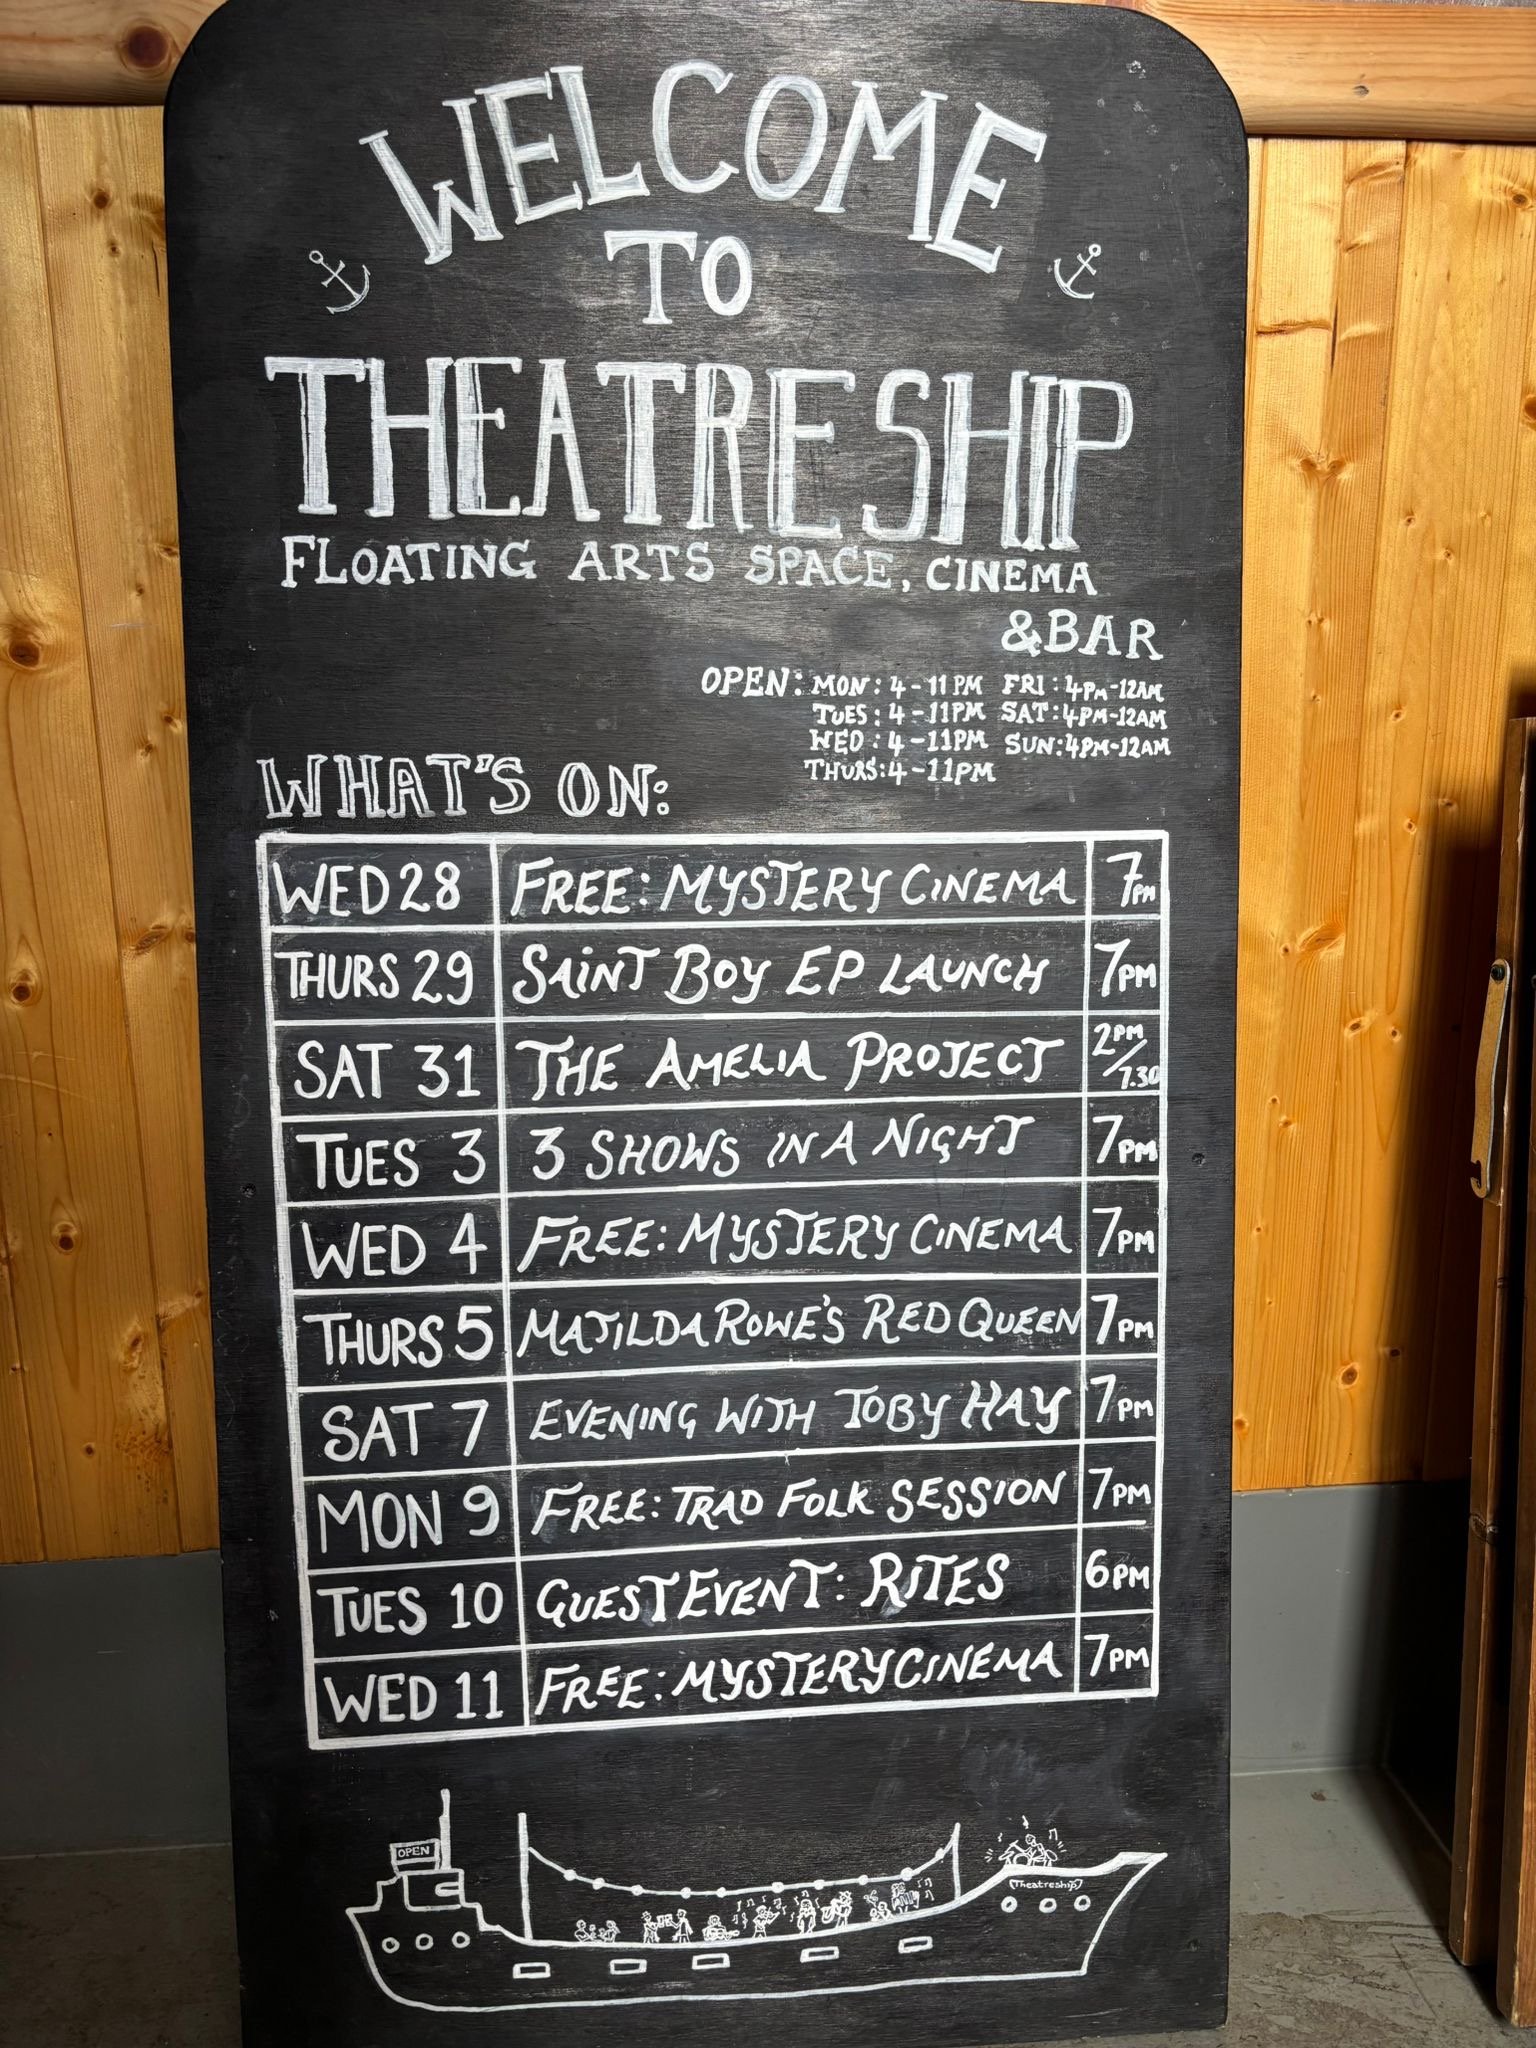 WELCOME
TO
THEATRESHIP
FLOATING ARTS SPACE, CINEMA
& BAR
OPEN: MON: 4-11PM FRI: 4PM-12AM
TUES: 4-11PM SAT: 4PM-12AM
WED: 4-11PM SUN: 4PM-12AM
THURS: 4-11PM
WHAT'S ON:
WED 28 FREE: MYSTERY CINEMA 7PM
THURS 29 SAINT BOY EP LAUNCH 7PM
SAT 31 THE AMELIA PROJECT 2PM/7.30
TUES 3 3 SHOWS IN A NIGHT 7PM
WED 4 FREE: MYSTERY CINEMA 7PM
THURS 5 MATILDA ROWE'S RED QUEEN 7PM
SAT 7 EVENING WITH TOBY HAY 7PM
MON 9 FREE: TRAD FOLK SESSION 7PM
TUES 10 GUEST EVENT: RITES 6PM
WED 11 FREE: MYSTERY CINEMA 7PM
OPEN
Theatreship